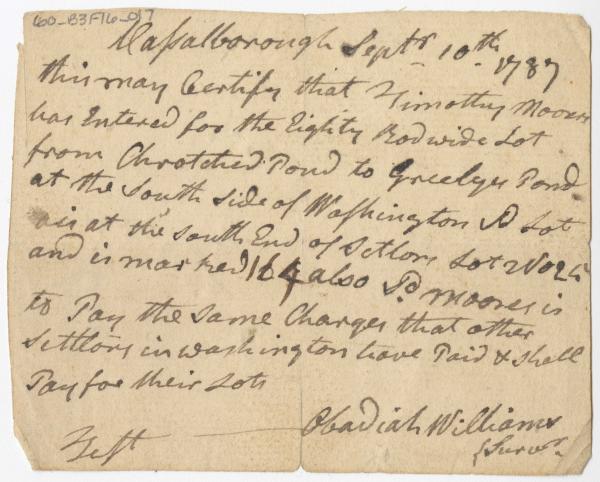 60-B3F16-017
Vassalborough Septr. 10th 1787
this may Certify that Timothy Moores
has Entered for the Eighty Rod wide Lot
from Chrotched Pond to Greelyes Pond
at the South Side of Washington Sd Lot
is at the South End of Setlors Lot No 25
and is marked 164 also Sd. Moores is
to Pay the Same Charges that other
Settlors in washington have Paid & Shall
Pay for their Lots
Test Obadiah Williams
Survr.